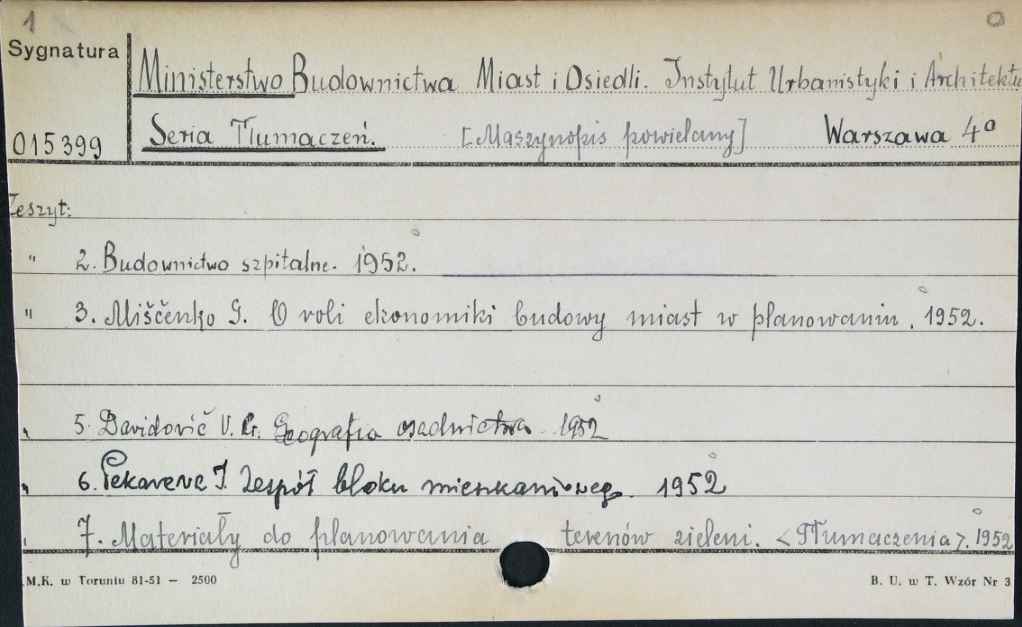 1
Sygnatura
Ministerstwo Budownictwa Miast i Osiedli. Instytut Urbanistyki i Architektu
015399
Seria Tłumaczeń. [Maszynopis powielany] Warszawa 4°
Zeszyt:
" 2. Budownictwo szpitalne. 1952.
" 3. Miščenko G. O roli ekonomiki budowy miast w planowaniu. 1952.
" 5. Davidovič V. Gr. Geografia osadnictwa 1952
" 6. Pekareve J. Zespół bloku mieszkaniowego. 1952
" 7. Materiały do planowania terenów zieleni. <Tłumaczenia>. 1952
M.K. w Toruniu 81-51 — 2500
B. U. w T. Wzór Nr 3